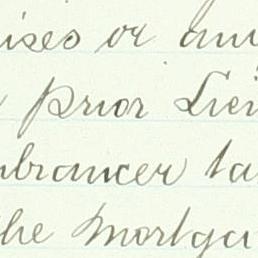 ises or any
prior Lien
mbrancer ta
the Mortga